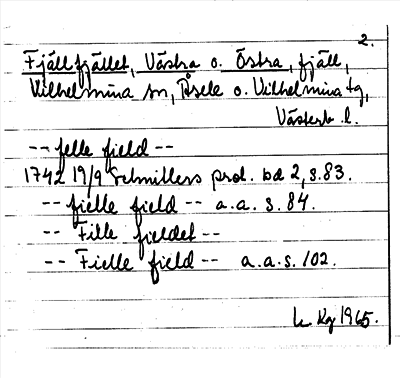 2.
Fjällfjället, Västra o. Östra, fjäll,
Vilhelmina sn, Åsele o. Vilhelmina tg,
Västerb. l.
-- felle field --
1742 19/9 Schnitlers prot. bd 2, s. 83.
-- fielle field -- a.a. s. 84.
-- Fille fieldet --
-- Fielle field -- a.a. s. 102.
Kg 1965.